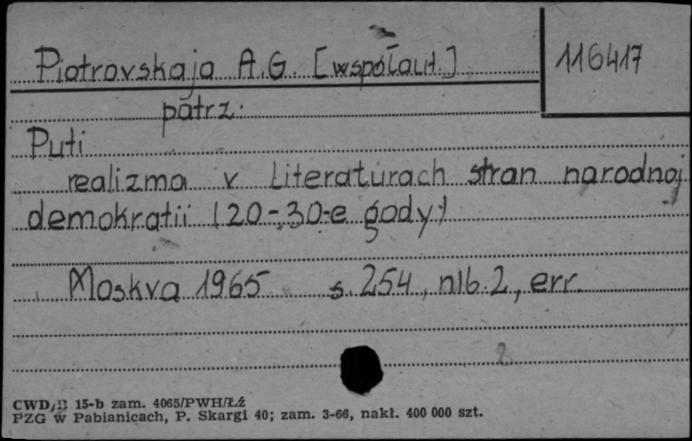 Piotrovskaja A.G. [współaut.]
116417
patrz:
Puti
realizma v literaturach stran narodnoj
demokratii (20-30-e gody)
Moskva 1965 s. 254, nlb. 2, err.
2
CWD/B 15-b zam. 4065/PWH/Łź
PZG w Pabianicach, P. Skargi 40; zam. 3-66, nakł. 400 000 szt.